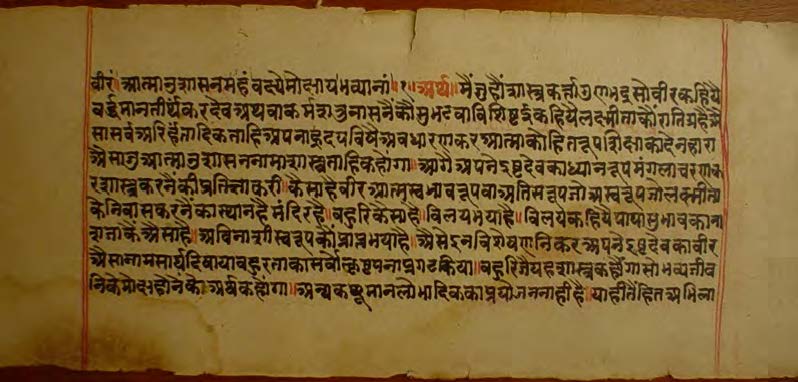 वीरं आत्मानुशासनमहं वक्ष्ये मोक्षाय भव्यानां॥१॥अर्थ॥ मैं जु हौं शास्त्रकर्त्ता गुणभद्र सो वीर कहियै
वर्द्धमान तीर्थंकरदेव अथवा कर्मशत्रु नासनैंकौं सुभट वा विशिष्ट ई कहिये लक्ष्मी ताकौं राति ग्रहै अै
सा सर्व अरिहंतादिक ताहि अपना हृदय विषै अवधारण कर आत्मा को हित रूप शिक्षा का देनहारा
अैसा जु आत्मानुशासन नामा शास्त्र ताहि कहोंगा॥ आगै अपने इष्टदेव का ध्यान रूप मंगलाचरण क
र शास्त्र करनैं की प्रतिज्ञा करी॥ कैसा है वीर आत्मस्वभाव रूप वा अतिसय रूप जो स्वरूप जो लक्ष्मी ता
के निवास करनैं का स्थान है मंदिर है॥ बहुरि कैसा है॥ विलय भया है॥ विलय कहिये पापा सुभाव का ना
श जाकै अैसा है॥ अविनाशी स्वरूप कौं प्राप्त भया है॥ अैसे इन विशेषणनि कर अपने इष्टदेव का वीर
अैसा नाम सार्थ दिषाया बहुर ताका सर्वोत्कृष्टपना प्रगट किया॥ बहुरि जै यह शास्त्र कहोंगा सो भव्य जीव
निके मोक्ष होनें के अर्थ कहोंगा॥ अन्य कछू मान लोभादिक का प्रयोजन नाही है॥ याही तैं हित अभिला